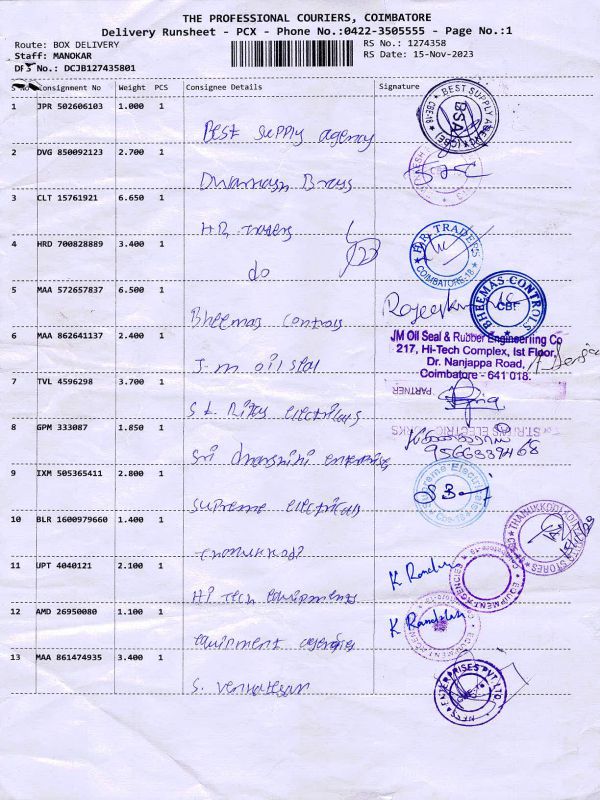 THE PROFESSIONAL COURIERS, COIMBATORE
Delivery Runsheet - PCX - Phone No.:0422-3505555 - Page No.:1
Route: BOX DELIVERY RS No.: 1274358
Staff: MANOKAR RS Date: 15-Nov-2023
No.: DCJB127435801
S No Consignment No Weight PCS Consignee Details Signature
1 JPR 502606103 1.000 1
Best Supply agency
BEST SUPPLY BSA CBE-18
2 DVG 850092123 2.700 1
3 CLT 15761921 6.650 1
HR Traders
HR TRADERS COIMBATORE-18
4 HRD 700828889 3.400 1
do
5 MAA 572657837 6.500 1
Bheemas controls
BHEEMAS CONTROLS CBE
6 MAA 862641137 2.400 1
J.m oil seal
JM Oil Seal & Rubber Engineeriing Co
217, Hi-Tech Complex, Ist Floor,
Dr. Nanjappa Road,
Coimbatore - 641 018.
PARTNER
7 TVL 4596298 3.700 1
St. Ritas electricals
8 GPM 333087 1.850 1
ST.RITA'S ELECTRIC WORKS
9566339468
Sri dharshini enterprise
9 IXM 505365411 2.800 1
Supreme electricals
10 BLR 1600979660 1.400 1
11 UPT 4040121 2.100 1
Hi Tech equipments
EQUIPMENT AGENCIES
12 AMD 26950080 1.100 1
equipment agencies
EQUIPMENT AGENCIES
13 MAA 861474935 3.400 1
S. Venkatesan
ENTERPRISES PVT. LTD.